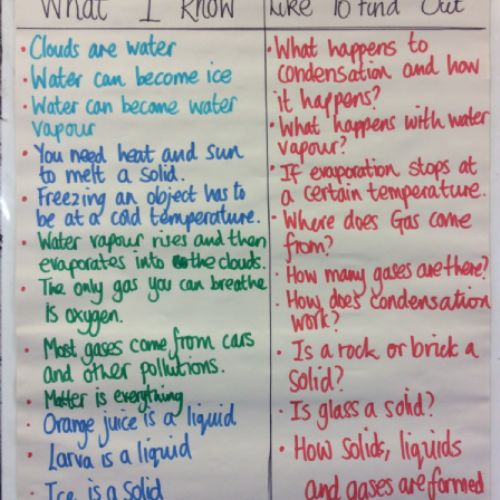 What I Know
Like To Find Out
• Clouds are water
• Water can become ice
• Water can become water
vapour
• You need heat and sun
to melt a solid.
• Freezing an object has to
be at a cold temperature.
• Water vapour rises and then
evaporates into the clouds.
• The only gas you can breathe
is oxygen.
• Most gases come from cars
and other pollutions.
• Matter is everything
• Orange juice is a liquid
• Larva is a liquid
• Ice is a solid
• What happens to
condensation and how
it happens?
• What happens with water
vapour?
• If evaporation stops at
a certain temperature.
• Where does Gas come
from?
• How many gases are there?
• How does condensation
work?
• Is a rock or brick a
solid?
• Is glass a solid?
• How solids, liquids
and gases are formed